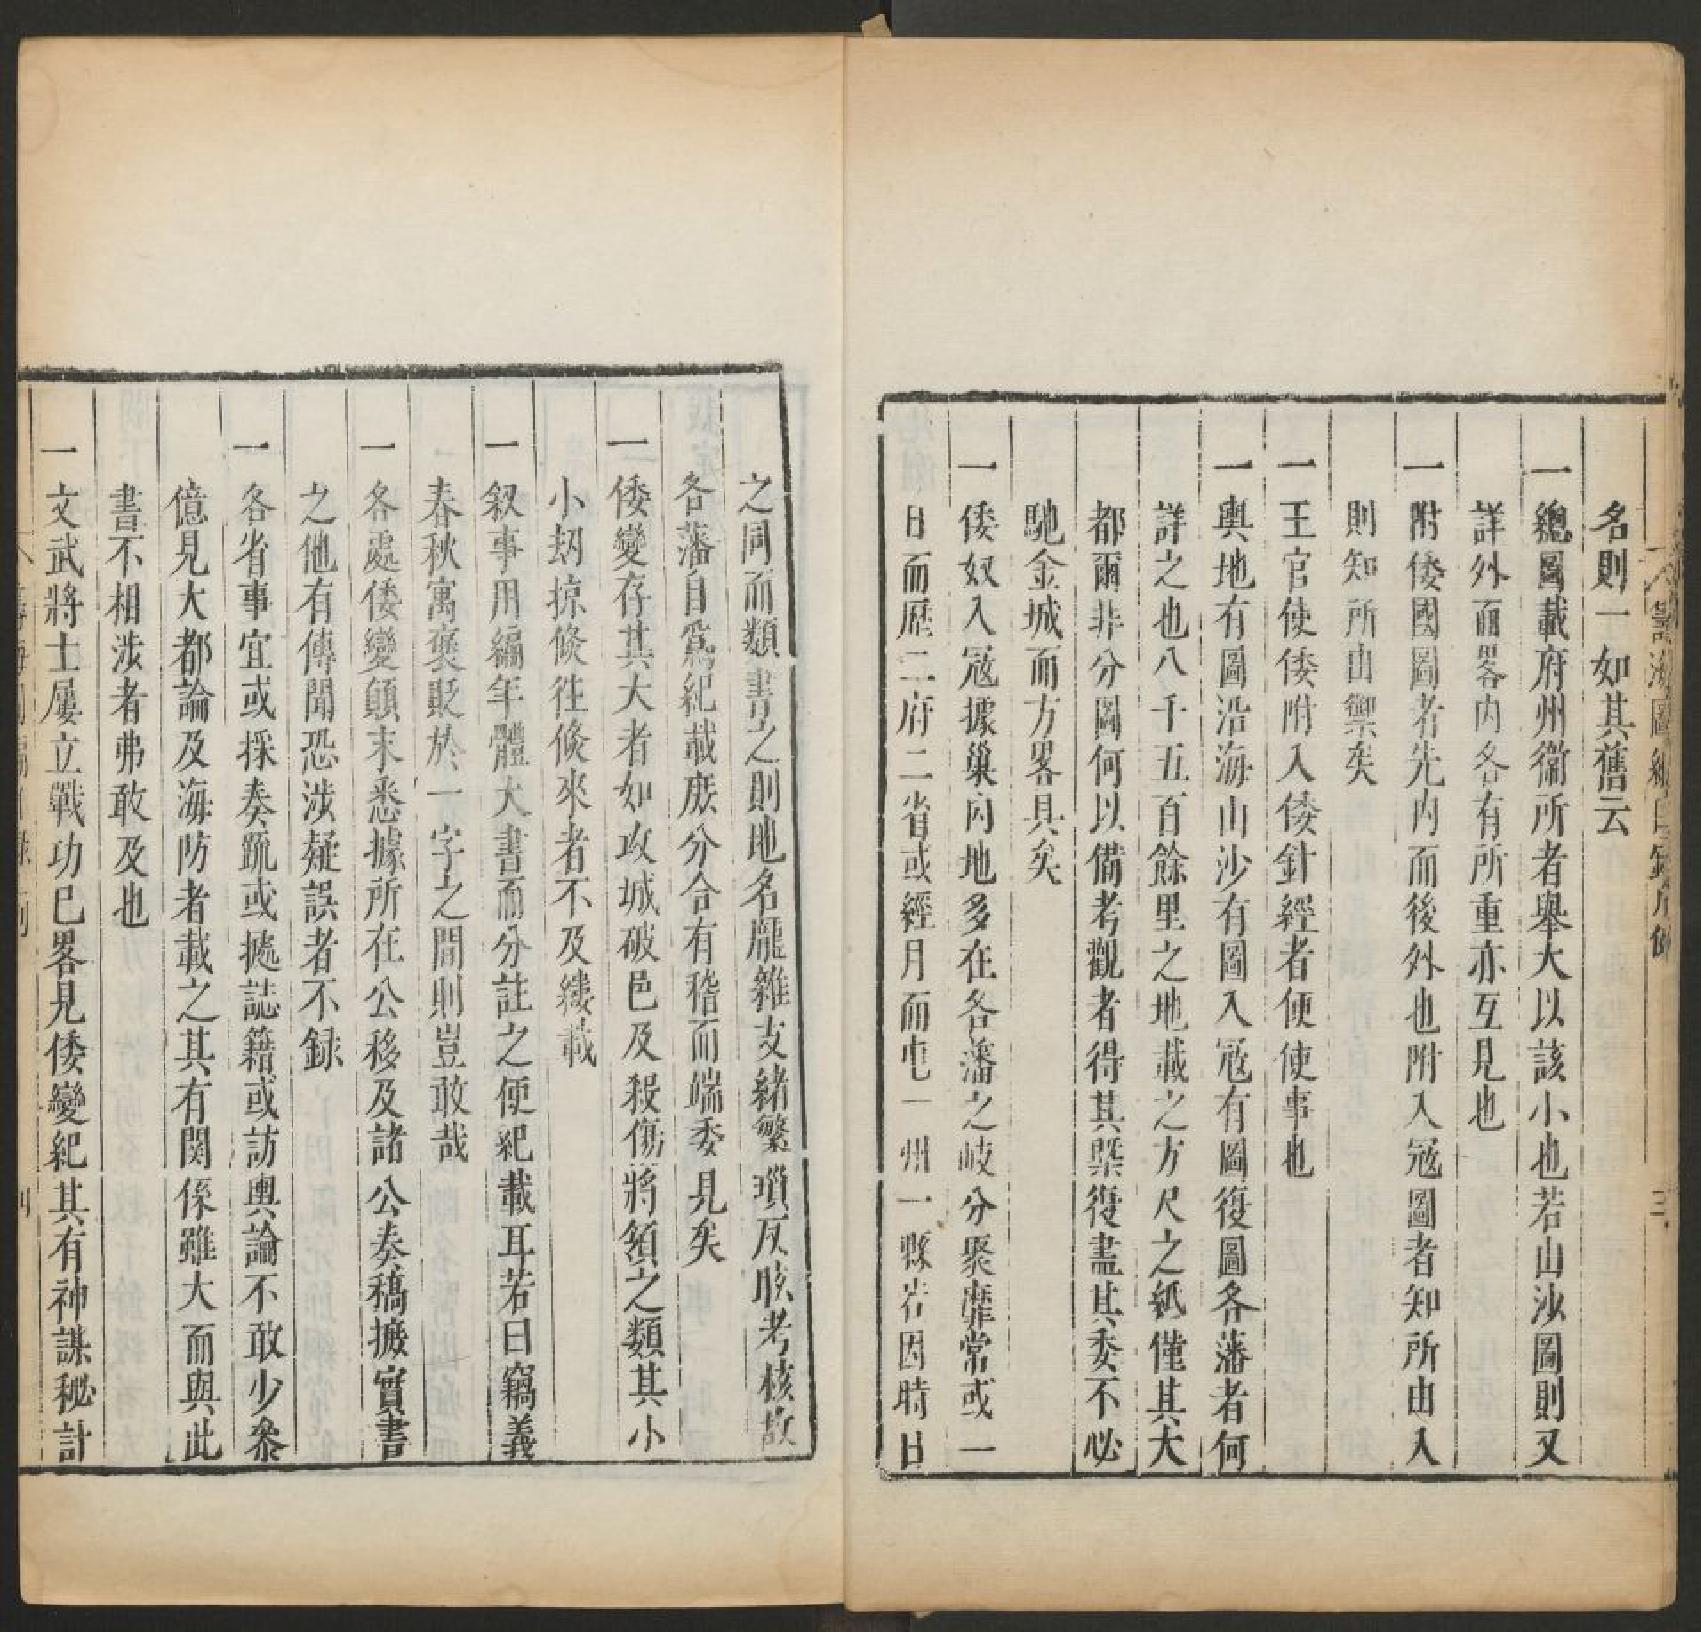 名則一如其舊云
一總圖載府州衞所者舉大以該小也若山沙圖則又
詳外而畧内各有所重亦互見也
一附倭國圖者先内而後外也附入寇圖者知所由入
則知所由禦矣
一王官使倭附入倭針經者便使事也
一輿地有圖沿海山沙有圖入寇有圖復圖各藩者何
詳之也八千五百餘里之地載之方尺之紙僅其大
都爾非分圖何以備考觀者得其槩復盡其委不必
馳金城而方畧具矣
一倭奴入寇據巢内地多在各藩之岐分聚靡常或一
日而歴二府二省或經月而屯一州一縣若因時日
之同而類書之則地名龐雜支緒繁瑣反賅考核故
各藩自爲紀載庶分合有稽而端委見矣
一倭變存其大者如攻城破邑及殺傷將領之類其小
小刼掠倐徃倐來者不及縷載
一叙事用編年體大書而分註之便紀載耳若曰竊義
春秋寓褒貶於一字之間則豈敢哉
一各處倭變顛末悉據所在公移及諸公奏稿摭實書
之他有傳聞恐涉疑誤者不録
一各省事宜或採奏疏或摭誌籍或訪輿論不敢少叅
億見大都論及海防者載之其有関係雖大而與此
書不相涉者弗敢及也
一文武將士屢立戰功已畧見倭變紀其有神謀秘計